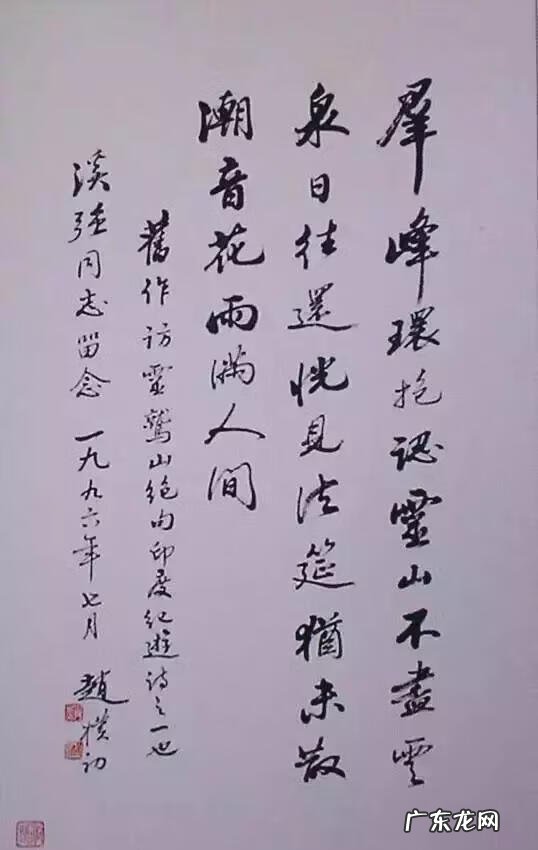 羣峰環抱認靈山不盡雲
泉日往還恍見法筵猶未散
潮音花雨滿人間
舊作訪靈鷲山絶句印度紀遊詩之一也
溪强同志留念 一九九六年七月 趙樸初
广东龙网